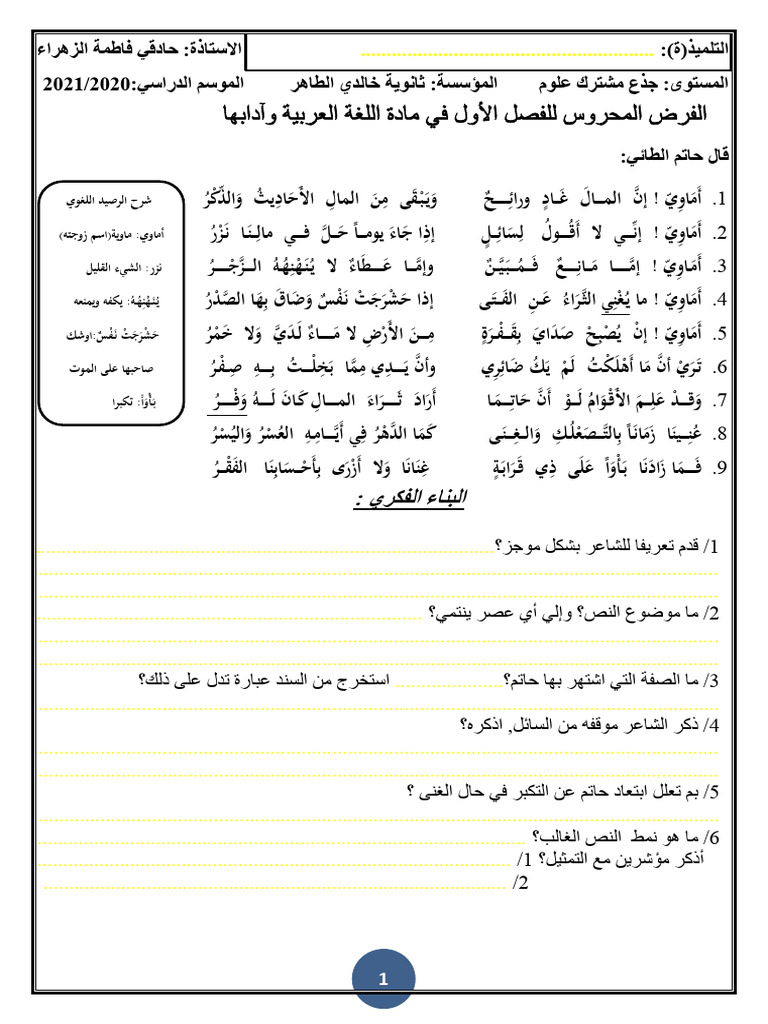 التلميذ(ة): ........................................................ الاستاذة: حادقي فاطمة الزهراء
المستوى: جذع مشترك علوم المؤسسة: ثانوية خالدي الطاهر الموسم الدراسي:2021/2020
الفرض المحروس للفصل الأول في مادة اللغة العربية وآدابها
قال حاتم الطائي:
1. أَمَاوِيّ ! إنَّ المـالَ غَـادٍ ورائِـحٌ وَيَبْقَى مِنَ المالِ الأَحَادِيثُ وَالذِّكْرُ
2. أَمَاوِيّ ! إنِّـي لا أَقُـولُ لِسَائِـلٍ إذا جَاءَ يوماً حَـلَّ فـي مالِـنَا نَزْرُ
3. أَمَاوِيّ ! إمَّـا مَـانِـعٌ فَـمُـبَيَّنٌ وإمَّـا عَـطَاءٌ لا يُنَهْنِهُهُ الـزَّجْـرُ
4. أَمَاوِيّ ! ما يُغْنِي الثَّرَاءُ عَـنِ الفَـتَى إذا حَشْرَجَتْ نَفْسٌ وَضَاقَ بِهَا الصَّدْرُ
5. أَمَاوِيّ ! إنْ يُصْبِحْ صَدَايَ بِـقَـفْرَةٍ مِـنَ الأَرْضِ لا مَـاءٌ لَدَيَّ وَلا خَمْرُ
6. تَرَيْ أنَّ مَا أَهْلَكْتُ لَمْ يَكُ ضَائِرِي وأنَّ يَـدِي مِمَّا بَخِلْـتُ بِـهِ صِفْرُ
7. وَقَـدْ عَلِـمَ الأَقْوَامُ لَـوْ أَنَّ حَاتِـمَا أَرَادَ ثَـرَاءَ المـالِ كَانَ لَـهُ وَفْـرُ
8. عُنِـينَا زَمَانَاً بِالتَّـصَعْلُكِ وَالـغِـنَى كَمَا الدَّهْرُ فِي أَيَّـامِهِ العُسْرُ وَاليُسْرُ
9. فَـمَا زَادَنَا بَأْوَاً عَلَى ذِي قَرَابَةٍ غِنَانَا وَلا أَزْرَى بِأَحْسَابِنَا الفَقْرُ
شرح الرصيد اللغوي
أماوي: ماوية(اسم زوجته)
نزر: الشيء القليل
يُنَهْنِهُهُ: يكفه ويمنعه
حَشْرَجَتْ نَفْسٌ:اوشك
صاحبها على الموت
بَأْوَاً: تكبرا
البناء الفكري :
1/ قدم تعريفا للشاعر بشكل موجز؟
2/ ما موضوع النص؟ وإلي أي عصر ينتمي؟
3/ ما الصفة التي اشتهر بها حاتم؟..................... استخرج من السند عبارة تدل على ذلك؟
4/ ذكر الشاعر موقفه من السائل, اذكره؟
5/ بم تعلل ابتعاد حاتم عن التكبر في حال الغنى ؟
6/ ما هو نمط النص الغالب؟
أذكر مؤشرين مع التمثيل؟ 1/
2/
1